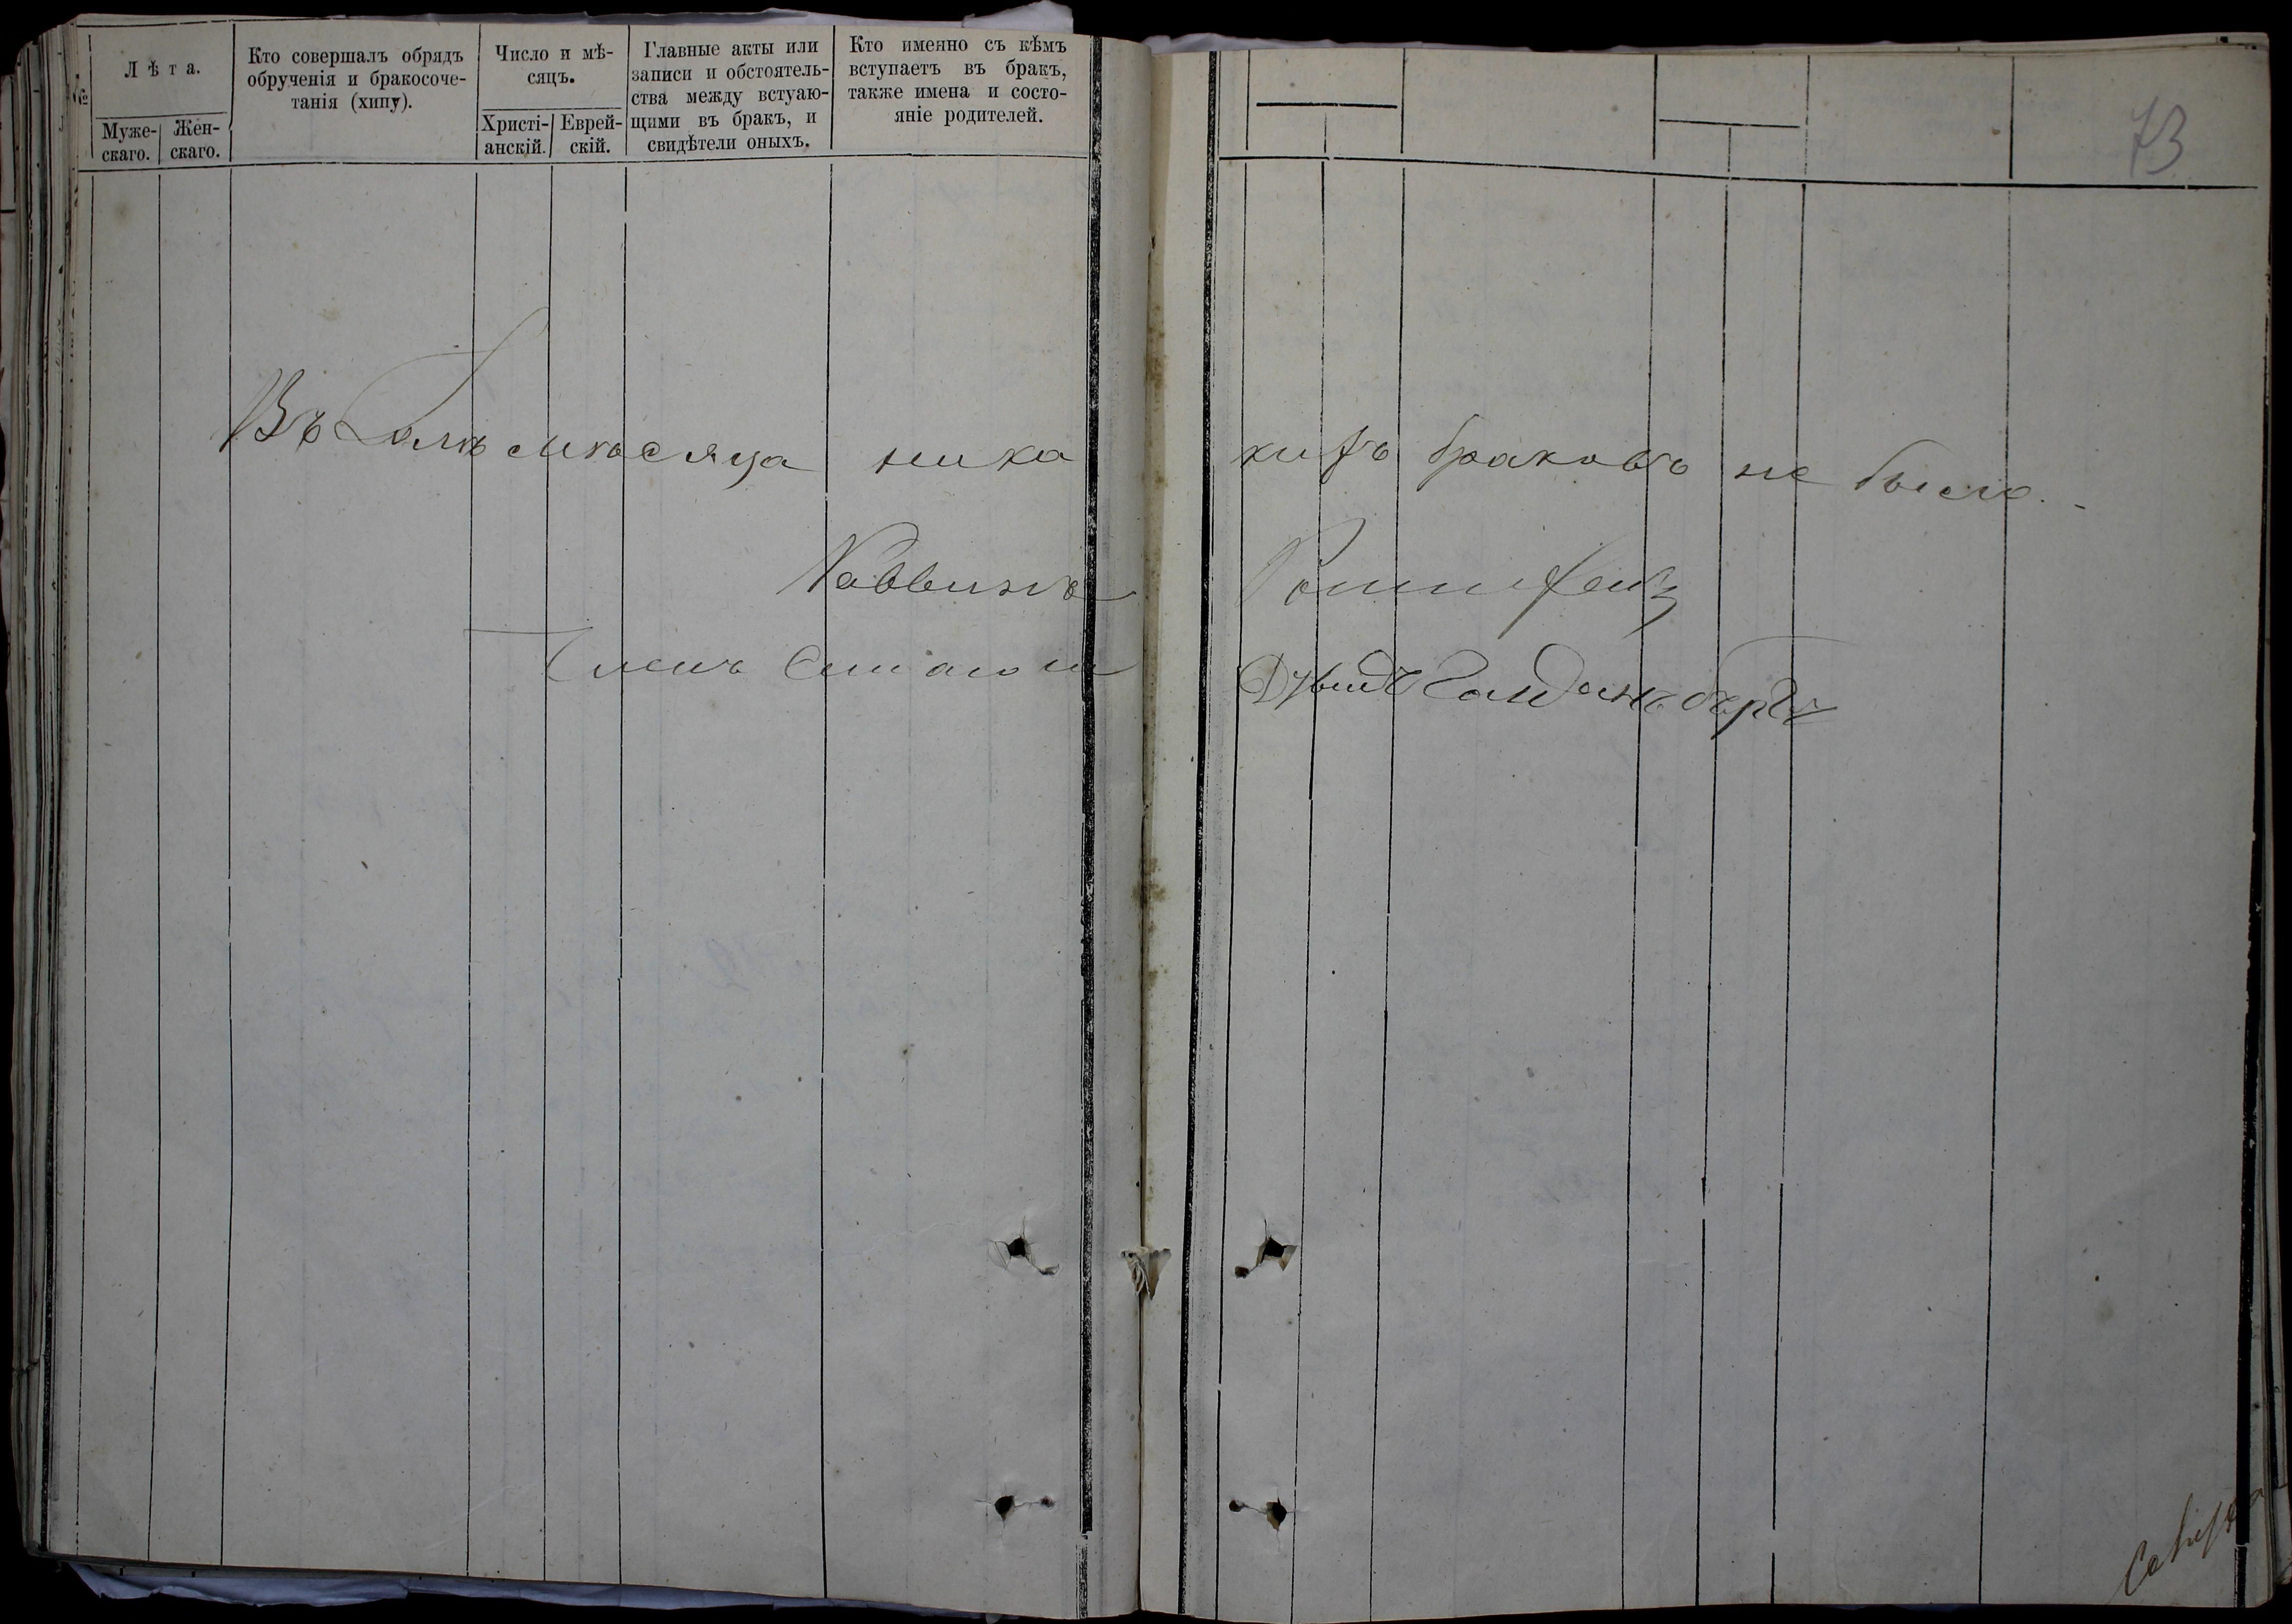 №
Лѣта.
Муже-
скаго.
Жен-
скаго.
Кто совершалъ обрядъ
обрученія и бракосоче-
танія (хипу).
Число и мѣ-
сяцъ.
Христі-
анскій.
Еврей-
скій.
Главные акты или
записи и обстоятель-
ства между встуаю-
щими въ бракъ, и
свидѣтели оныхъ.
Кто именно съ кѣмъ
вступаетъ въ бракъ,
также имена и состо-
яніе родителей.
73
Въ мѣсяца ника кихъ браковъ не было.
Раввинъ
Членъ